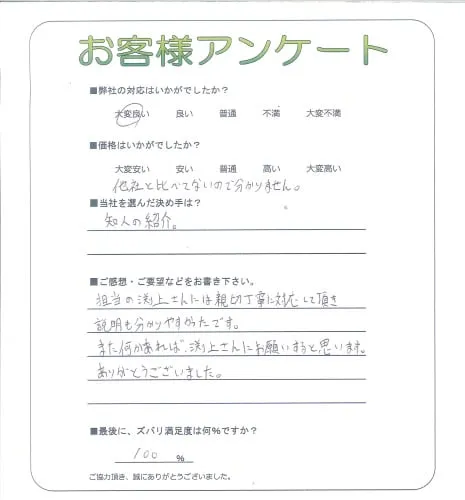 お客様アンケート
■弊社の対応はいかがでしたか？
大変良い 良い 普通 不満 大変不満
■価格はいかがでしたか？
大変安い 安い 普通 高い 大変高い
他社と比べてないので分かりません。
■当社を選んだ決め手は？
知人の紹介。
■ご感想・ご要望などをお書き下さい。
担当の渕上さんには親切丁寧に対応して頂き
説明も分かりやすかったです。
また何かあれば、渕上さんにお願いすると思います。
ありがとうございました。
■最後に、ズバリ満足度は何%ですか？
100 %
ご協力頂き、誠にありがとうございました。